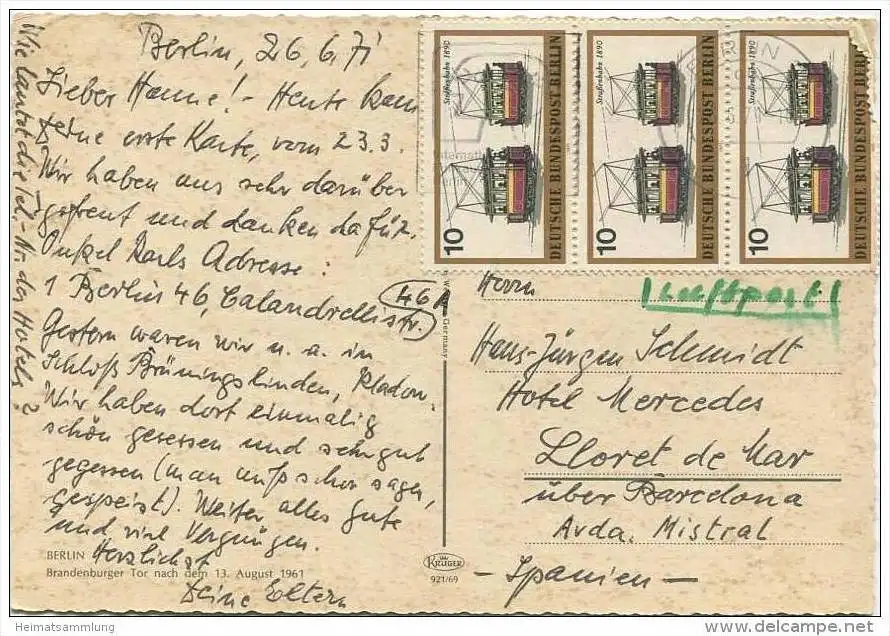 Berlin, 26.6.71
Lieber Hanne! - Heute kam
Deine erste Karte, vom 23.3.
Wir haben uns sehr darüber
gefreut und danken dafür.
Onkel Karls Adresse:
1 Berlin 46, Calandrellistr.
46A
Gestern waren wir u. a. in
Schloß Brüningslinden, Kladow.
Wir haben dort einmalig
schön gesessen und sehr gut
gegessen (man muß schon sagen,
gespeist). Weiter alles Gute
und viel Vergnügen.
Herzlichst
Deine Eltern
Wie lautet die Tel.-Nr. des Hotels?
BERLIN
Brandenburger Tor nach dem 13. August 1961
KRÜGER
921/69
Germany
10
Straßenbahn 1890
DEUTSCHE BUNDESPOST BERLIN
10
Straßenbahn 1890
DEUTSCHE BUNDESPOST BERLIN
10
Straßenbahn 1890
DEUTSCHE BUNDESPOST BERLIN
Luftpost!
Herrn
Hans-Jürgen Schmidt
Hotel Mercedes
Lloret de Mar
über Barcelona
Avda. Mistral
- Spanien -
Heimatsammlung
www.delcampe.net